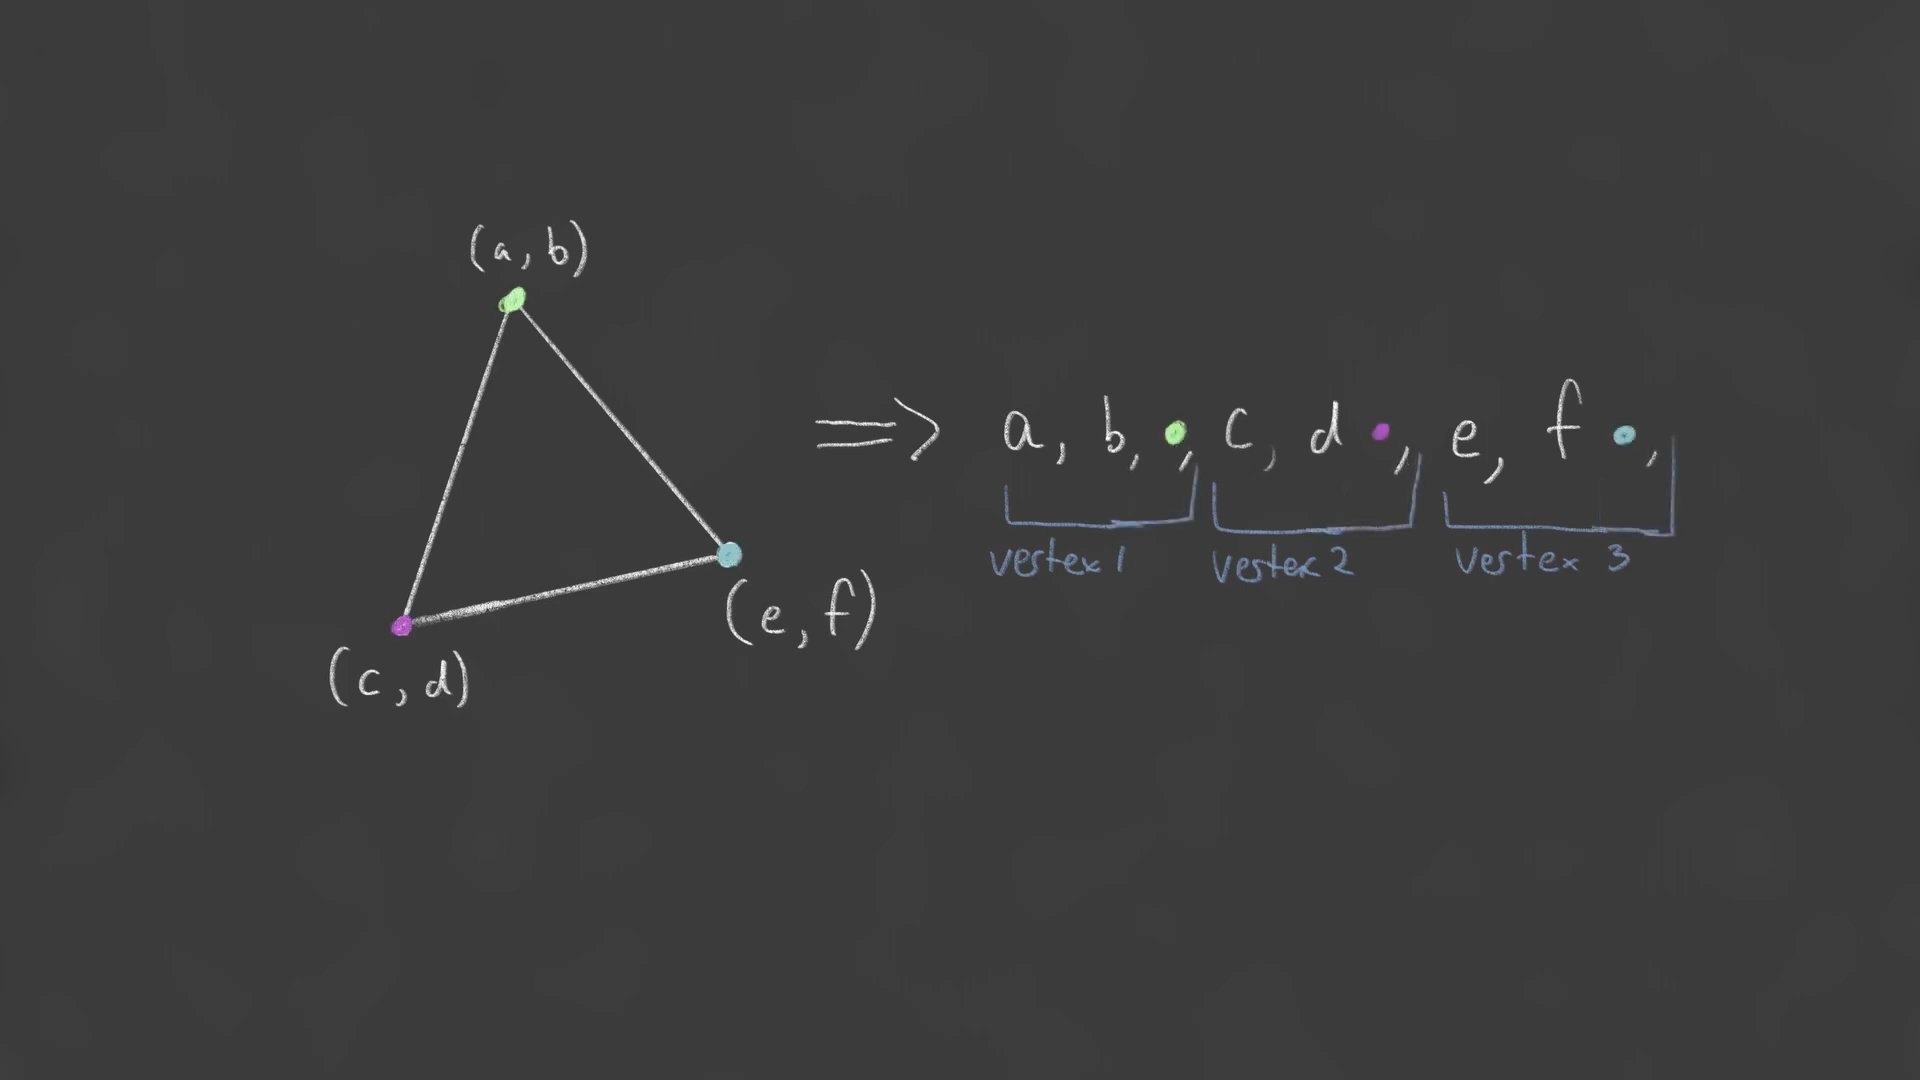 (a, b)
(c, d)
(e, f)
a, b, , c, d , e, f ,
vertex 1
vertex 2
vertex 3